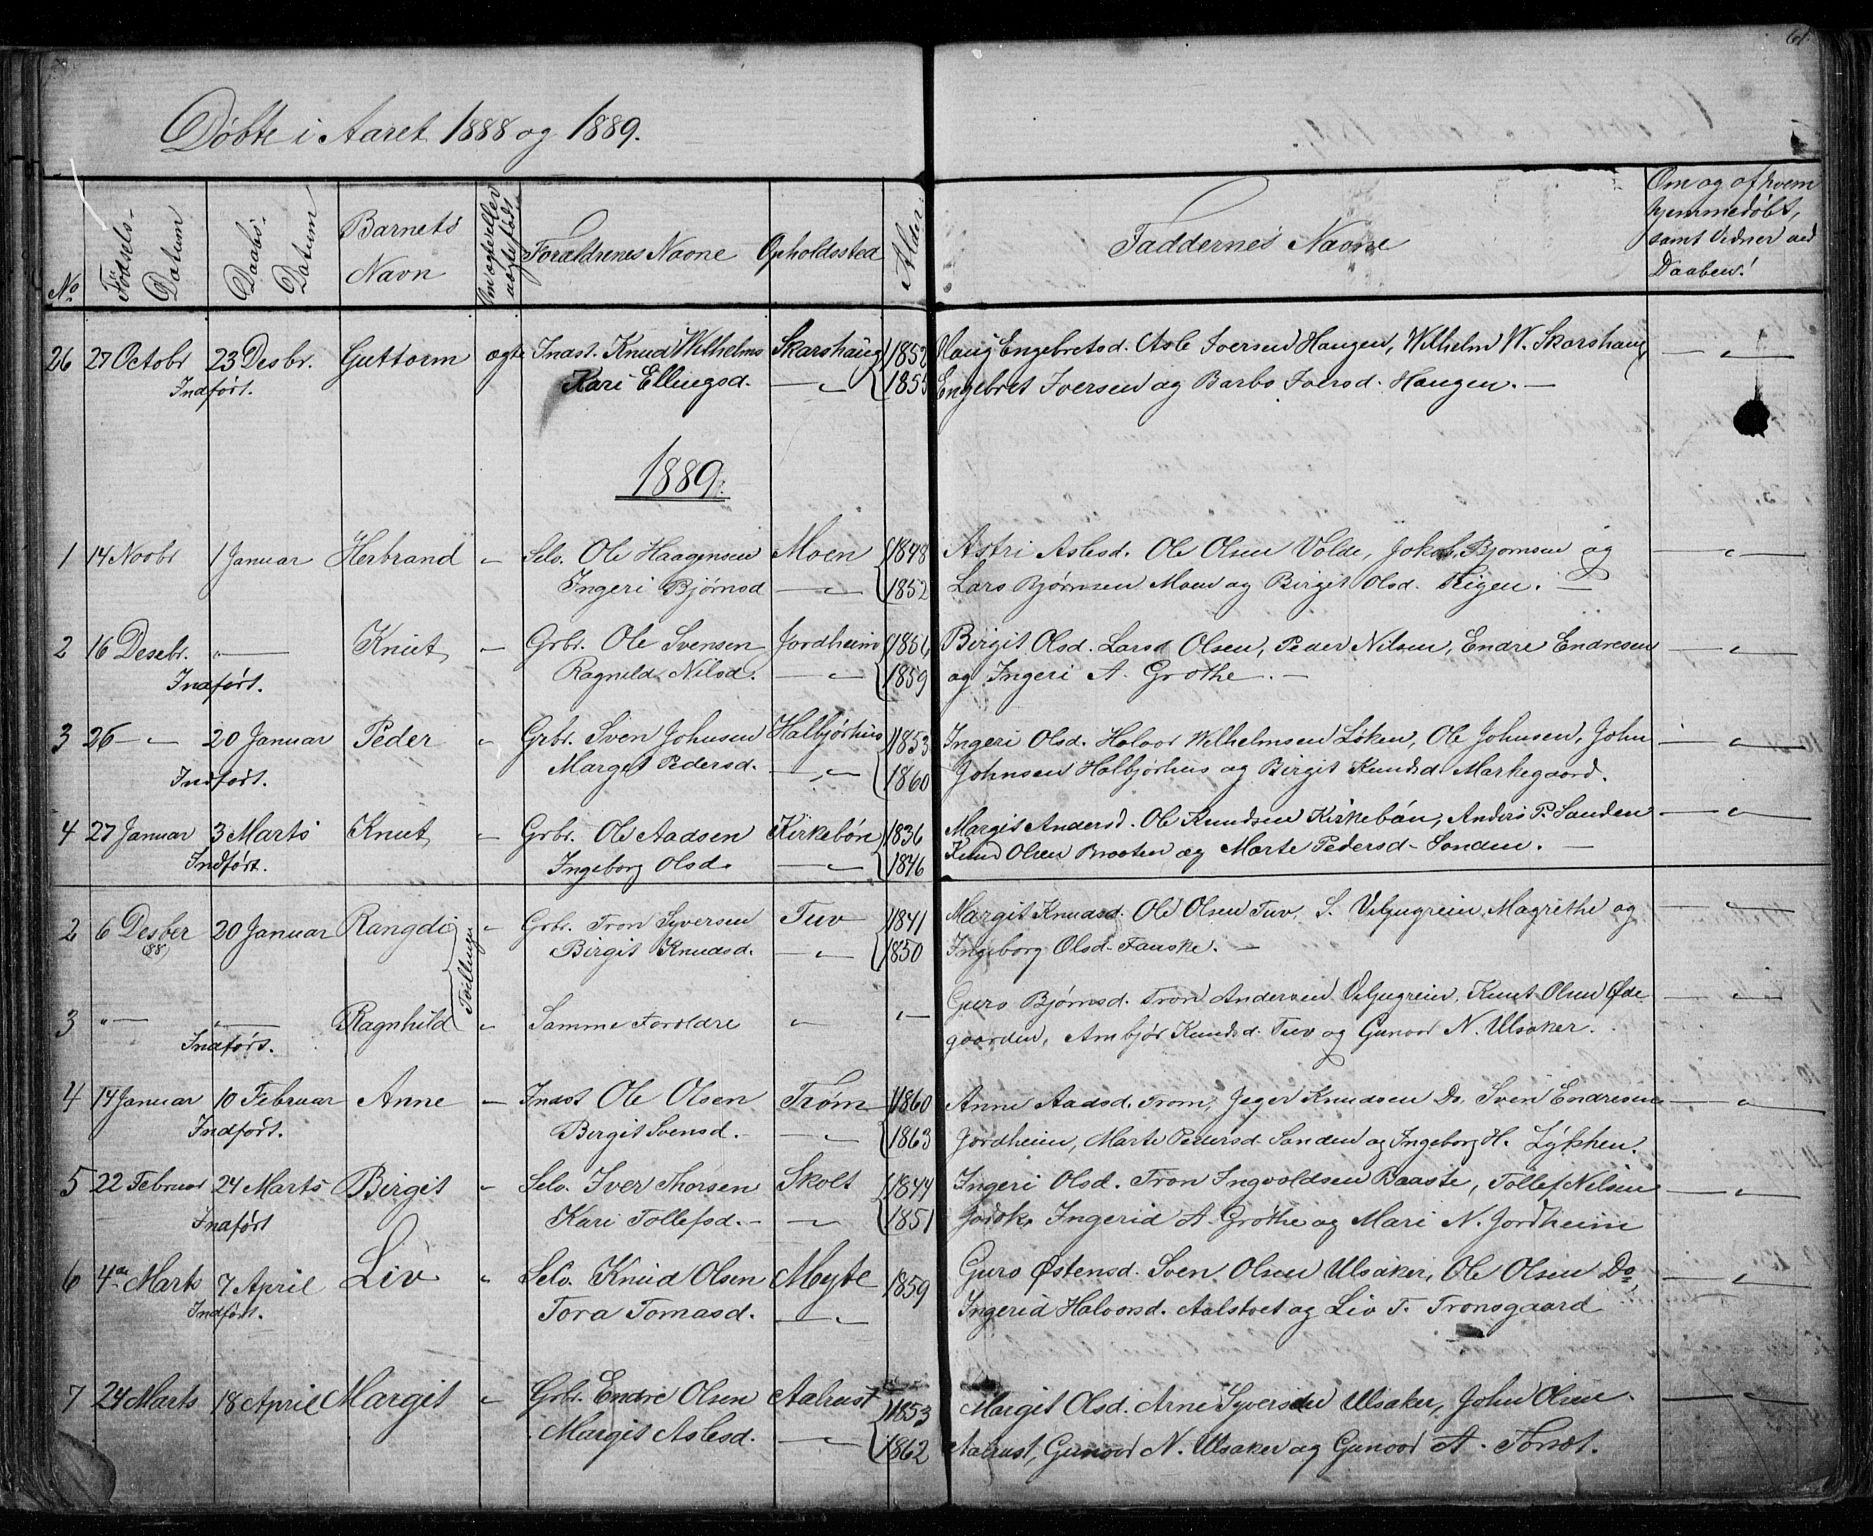 61.
Døbte i Aaret 1888 og 1889.
No Fødsels-Datum Daabs-Datum Barnets Navn Om ægte eller uægte født Forældrenes Navne Opholdssted Alder. Faddernes Navne Om og af hvem hjemmedøbt, samt Vidner ved Daaben!
26 27 Octobr 23 Desbr. Guttorm ægte Indst. Knud Wilhelms Skarshaug 1852 Haug Engebretsd. Asle Iversen Haugen, Wilhelm W. Skarshaug — „ —
Indført. Kari Ellingsd. — „ — 1855 Engebret Iversen og Barbo Iversd. Haugen. —
1889.
1 14 Novbr 1 Januar Herbrand „ Selv. Ole Haagensen Moen 1848 Astri Aslesd. Ole Olsen Volde, Jokob Bjørnsen og — „ —
Ingeri Bjørnsd — „ — 1852 Lars Bjørnsen Moen og Birgit Olsd. Teigen. —
2 16 Desebr. „ — Knut „ Grbr. Ole Svensen Jordheim 1856 Birgit Olsd. Larsd Olsen, Peder Nilsen, Endre Endresen — „ —
Indført. Ragnild Nilsd. — „ — 1859 og Ingeri A. Grøthe. —
3 26 — „ — 20 Januar Peder „ Grbr. Sven Johnsen Halbjørhus 1853 Ingeri Olsd. Halvor Wilhelmsen Løken, Ole Johnsen, John — „ —
Indført. Marget Pedersd. — „ — 1860 Johnsen Halbjørhus og Birgit Knudsd. Markegaard.
4 27 Januar 3 Marts Knut „ Grbr. Ole Aadsen Kirkebøn 1836 Margit Andersd. Ole Knudsen Kirkebøn, Anders P. Sanden — „ —
Indført. Ingeborg Olsd. — „ — 1846 Knud Olsen Braaten og Marte Pedersd. Sanden. —
2 6 Desber 20 Januar Rangdi „ Grbr. Tron Syversen Tuv 1841 Margit Knudsd. Ole Olsen Tuv, S. Veljugrein, Magrethe og — „ —
(88) Tvillinger Birgit Knudsd. — „ — 1850 Ingeborg Olsd. Fauske. —
3 „ — „ — Ragnhild „ Samme Foreldre „ „ — Guro Bjørnsd. Tron Andersen Veljugrein, Knut Olsen Øde — „ —
Indført. gaarden, Ambjør Knudsd. Tuv og Gunvor N. Ulsaker.
4 14 Januar 10 Februar Anne „ Indst Ole Olsen Trøm 1860 Anne Aadsd. Trøm, Jeger Knudsen Do. Sven Endresen — „ —
Indført. Birgit Svensd. — „ — 1863 Jordheim, Marte Pedersd. Sanden og Ingeborg H. Lykkhen.
5 22 Februar 24 Marts Birgit „ Selv. Iver Thorsen Skolt 1844 Ingeri Olsd. Tron Ingvoldsen Baaste, Tollef Nilsen — „ —
Indført Kari Tollefsd. — „ — 1851 Jordk, Ingerid A. Grøthe og Mari N. Jordheim
6 4de Marts 7 April Liv „ Selv. Knud Olsen Myte 1859 Guro Østensd. Sven Olsen Ulsaker, Ole Olsen Do, — „ —
Indført. Tora Tomasd. — „ — Ingerid Halvorsd. Aalstvet og Liv T. Tronsgaard
7 24 Marts 18 April Margit „ Grbr. Endre Olsen Aalrust 1853 Margit Olsd. Arne Syversen Ulsaker, John Olsen — „ —
Margit Aslesd. — „ — 1862 Aalrust, Gunvor N. Ulsaker og Gunvor A.